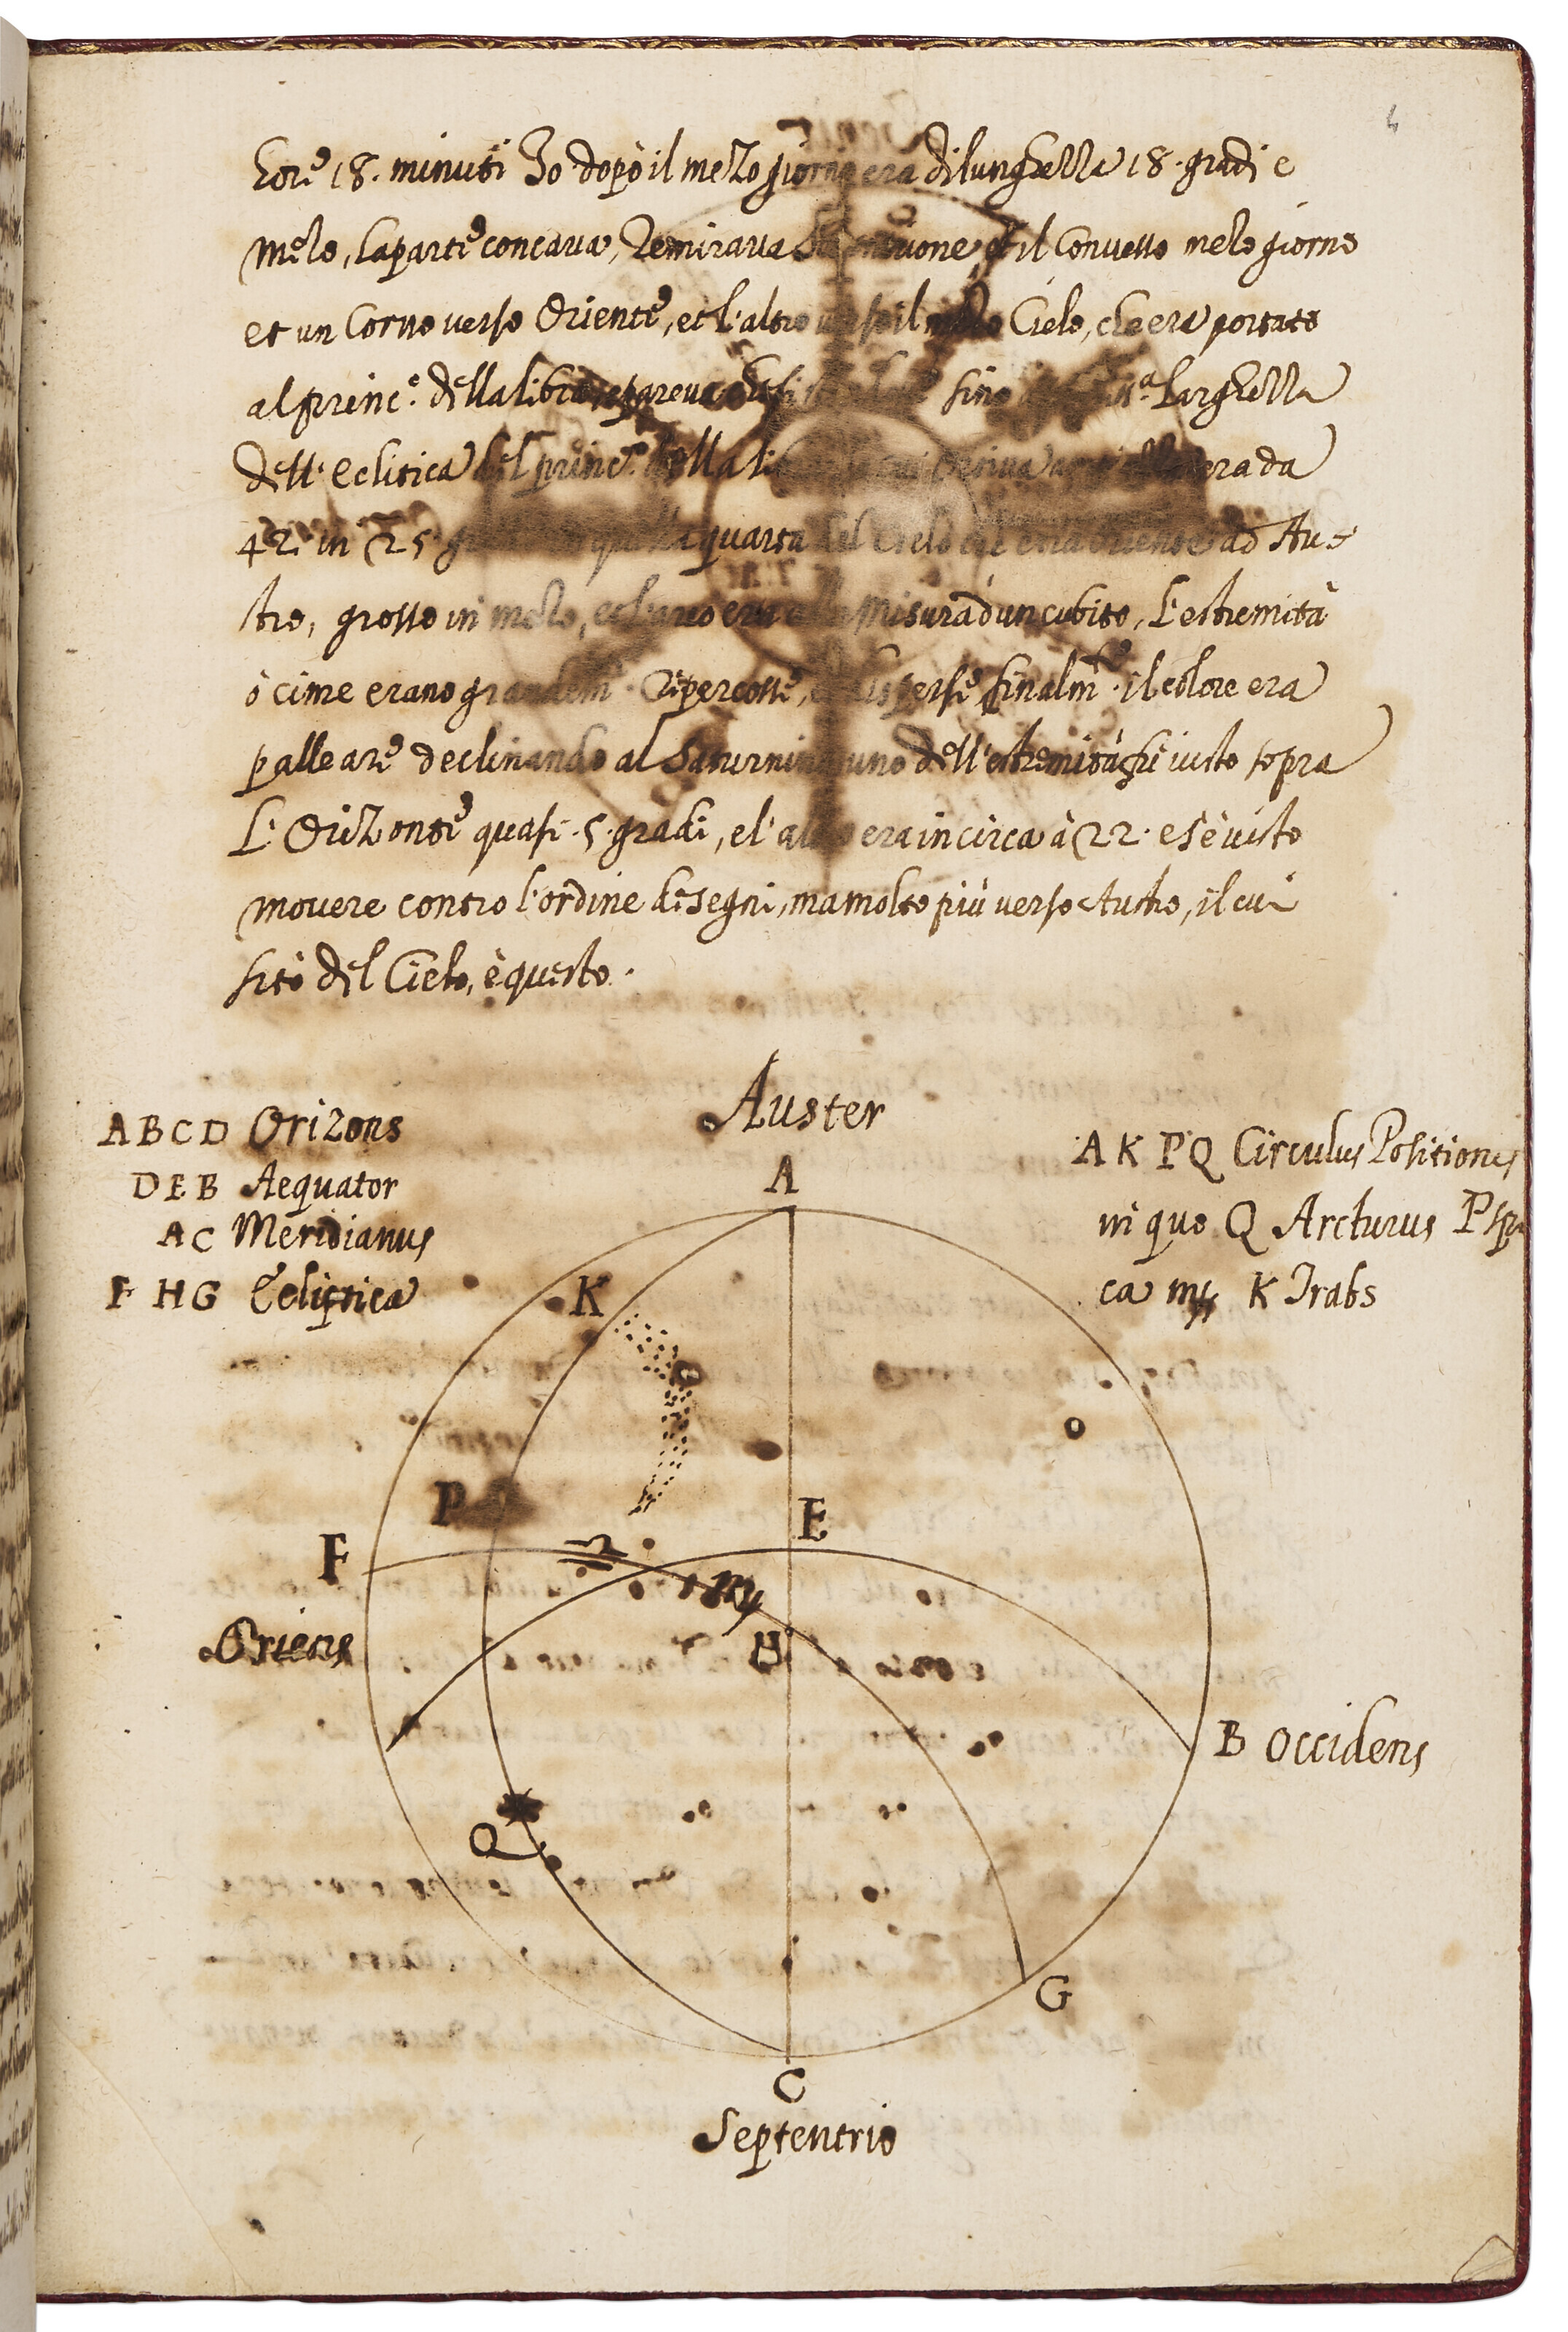 4
hore 18. minuti 30. dopo il mezo giorno era di lunghezza 18. gradi e
mezo, la parte concava, remirava il Convesso mezo giorno
et un Corno verso Oriente, et l'altro verso il mezo Cielo, che era portato
al princ.e della libra, e pareva fino larghezza
dell' eclitica del princ.e della era da
42 in 25 quarta del Cielo che era Oriente ad Aus-
tro, grosso in mezo, era alla misura d'un cubito, l'estremità
ò cime erano grandem.te Ripercosse, e disperse finalm.te il colore era
palleare declinando al Saturnino uno dell'estremità fu iusto sopra
l'Orizonte quasi .5. gradi, e l'altro era in circa à 22. e s'è visto
movere contro l'ordine di segni, ma molto più verso Austro, il cui
sito del Cielo, è questo.
Auster
ABCD Orizons
DEB Aequator
AC Meridianus
F HG Ecliptica
A K P Q Circulus Positiones
in quo Q Arcturus P Spi
ca ♍ K Trabs
A
K
P
E
F
♎
♍
H
Oriens
B Occidens
Q
G
C
Septentrio